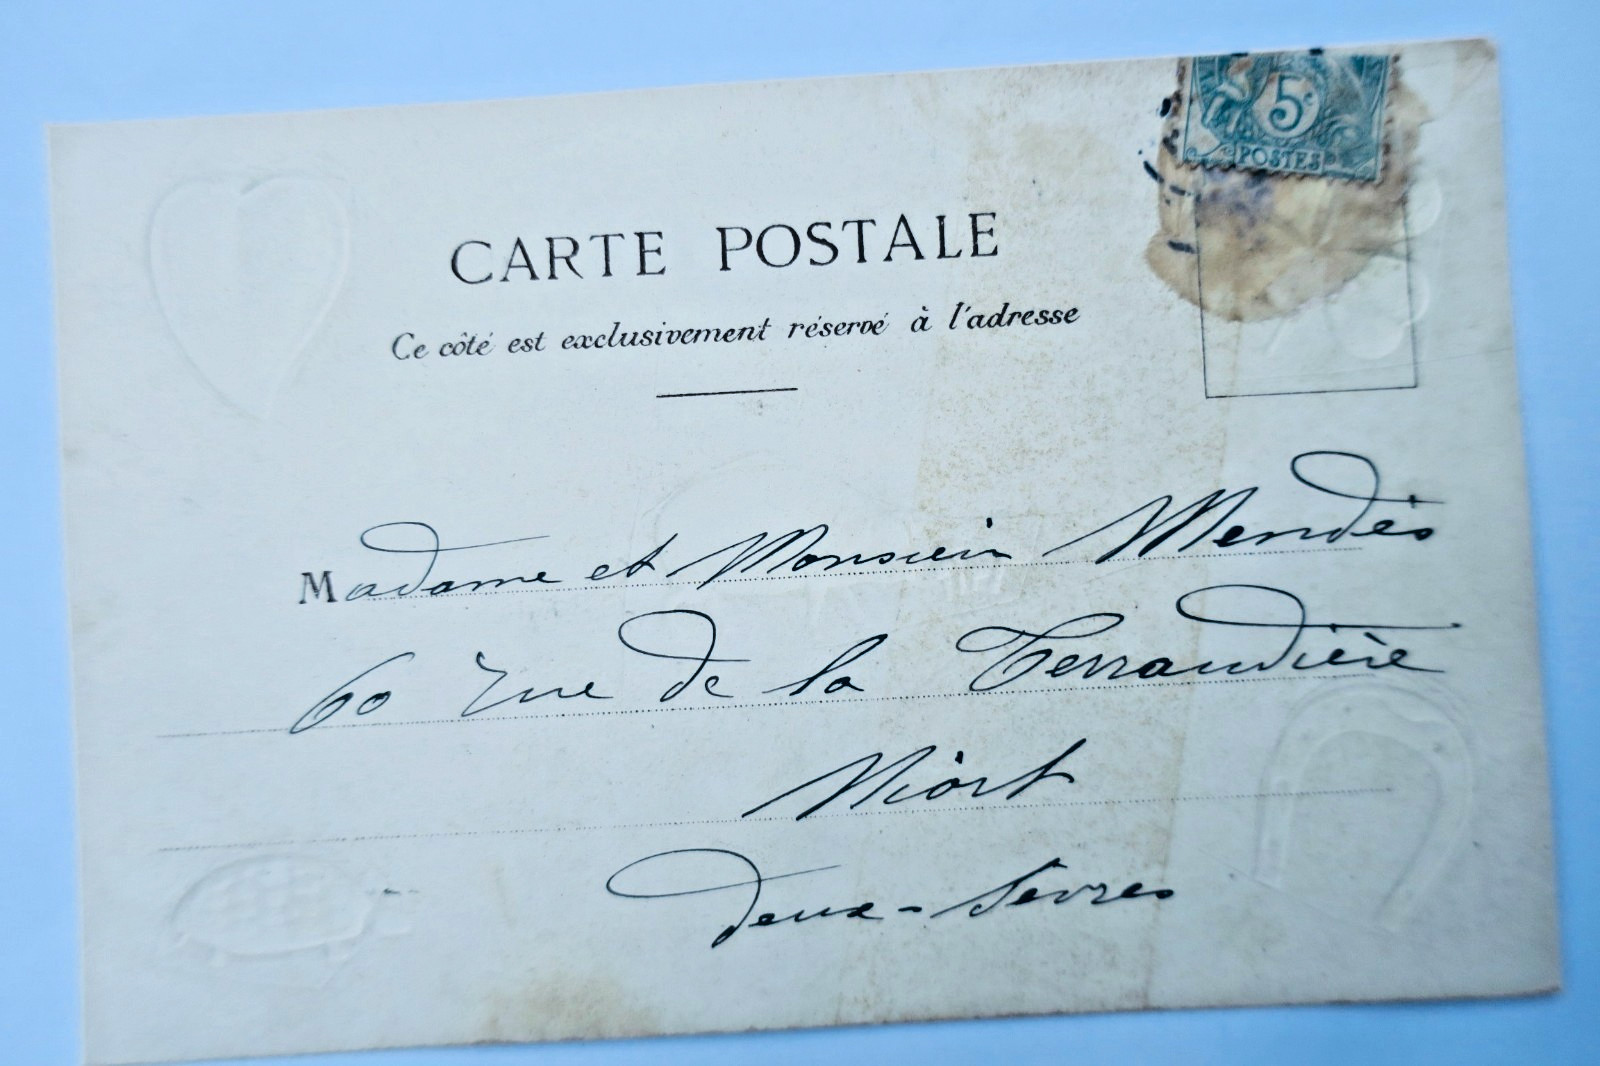 5c
POSTES
CARTE POSTALE
Ce côté est exclusivement réservé à l'adresse
Madame et Monsieur Mendès
60 rue de la Terraudière
Niort
Deux-Sèvres